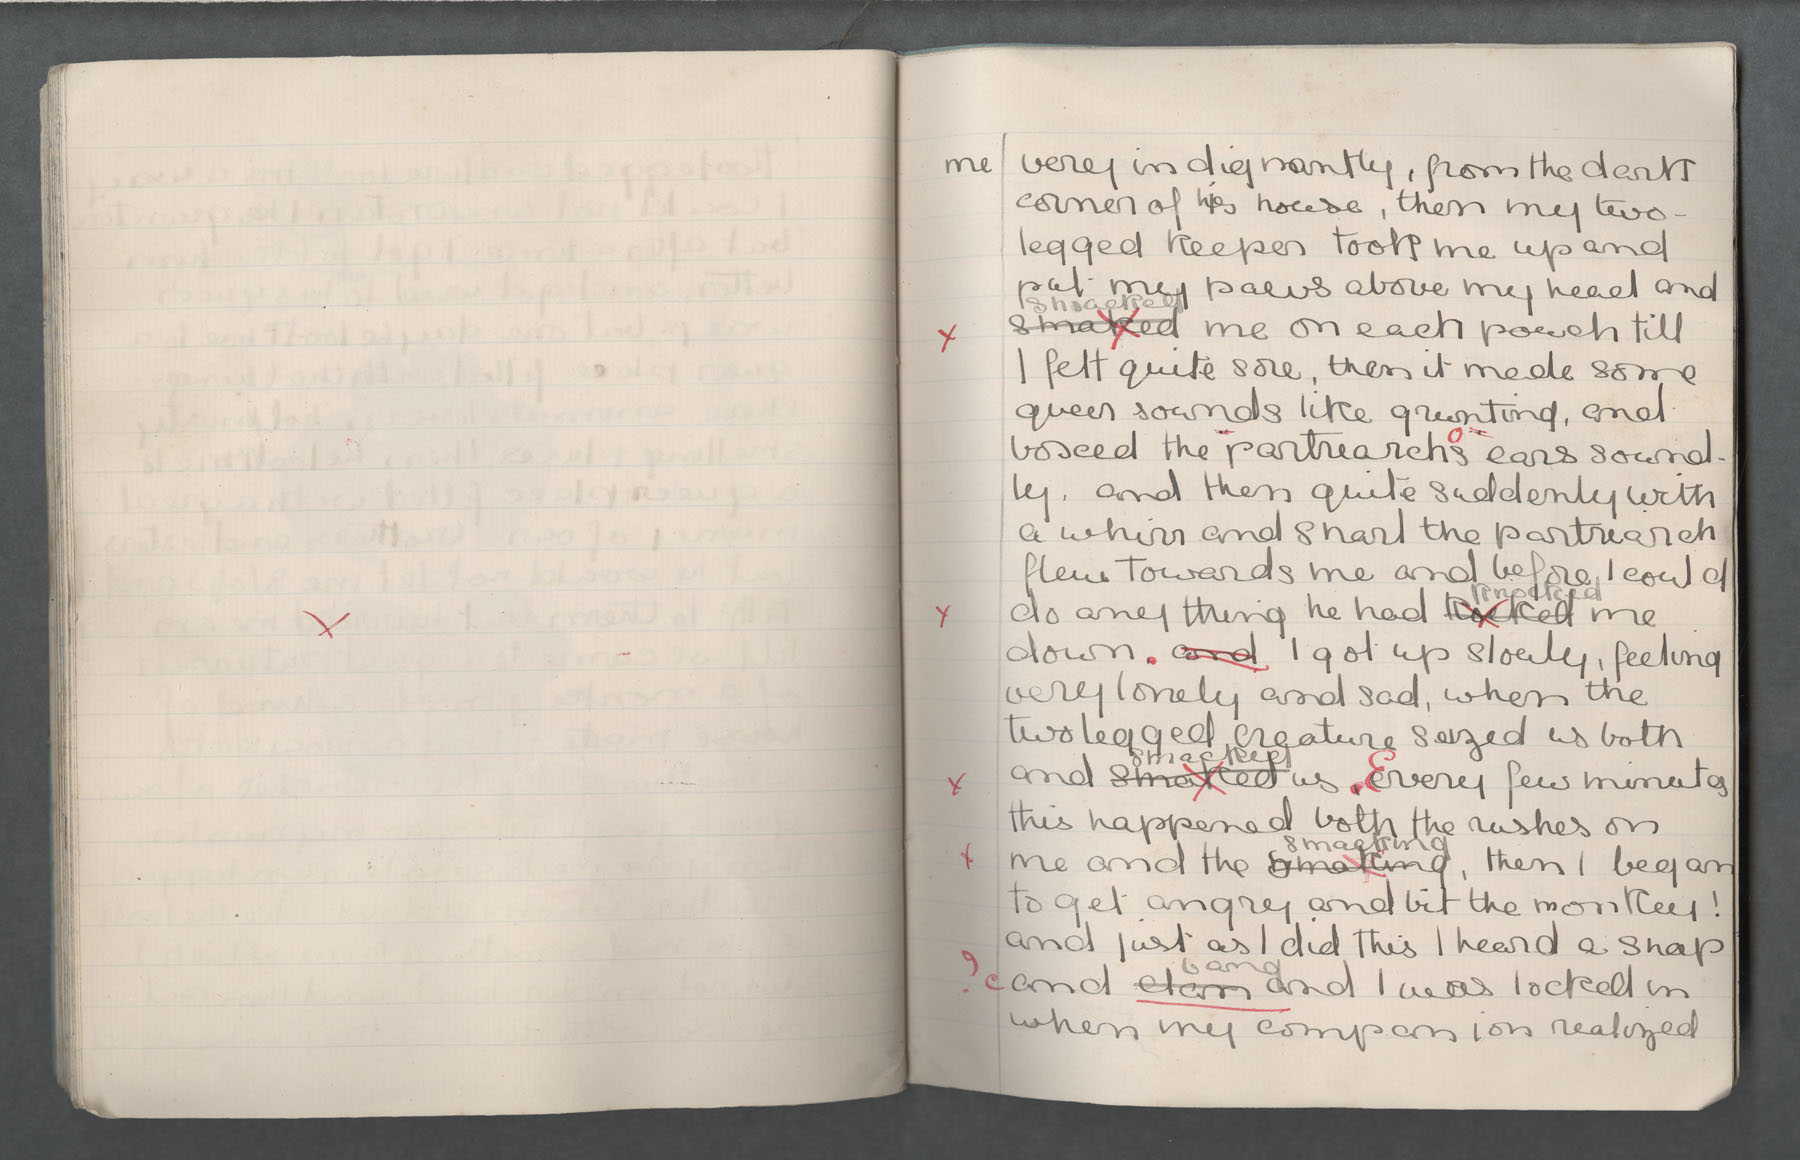 me very indignantly, from the dark
corner of his house, then my two-
legged keeper took me up and
put my paws above my head and
smacked
smaked me on each pouch till
I felt quite sore, then it made some
queer sounds like grunting, and
boxed the partriarch's ears sound-
ly, and then quite suddenly with
a whirr and snarl the partriarch
flew towards me and before I could
knocked
x do any thing he had kocked me
down. and I got up slowly, feeling
very lonely and sad, when the
twolegged creature seized us both
smacked
x and smaked us. Every few minutes
this happened both the rushes on
smacking
x me and the smaking, then I began
to get angry and bit the monkey!
and just as I did this I heard a snap
bang
? c and clam and I was locked in
when my companion realized